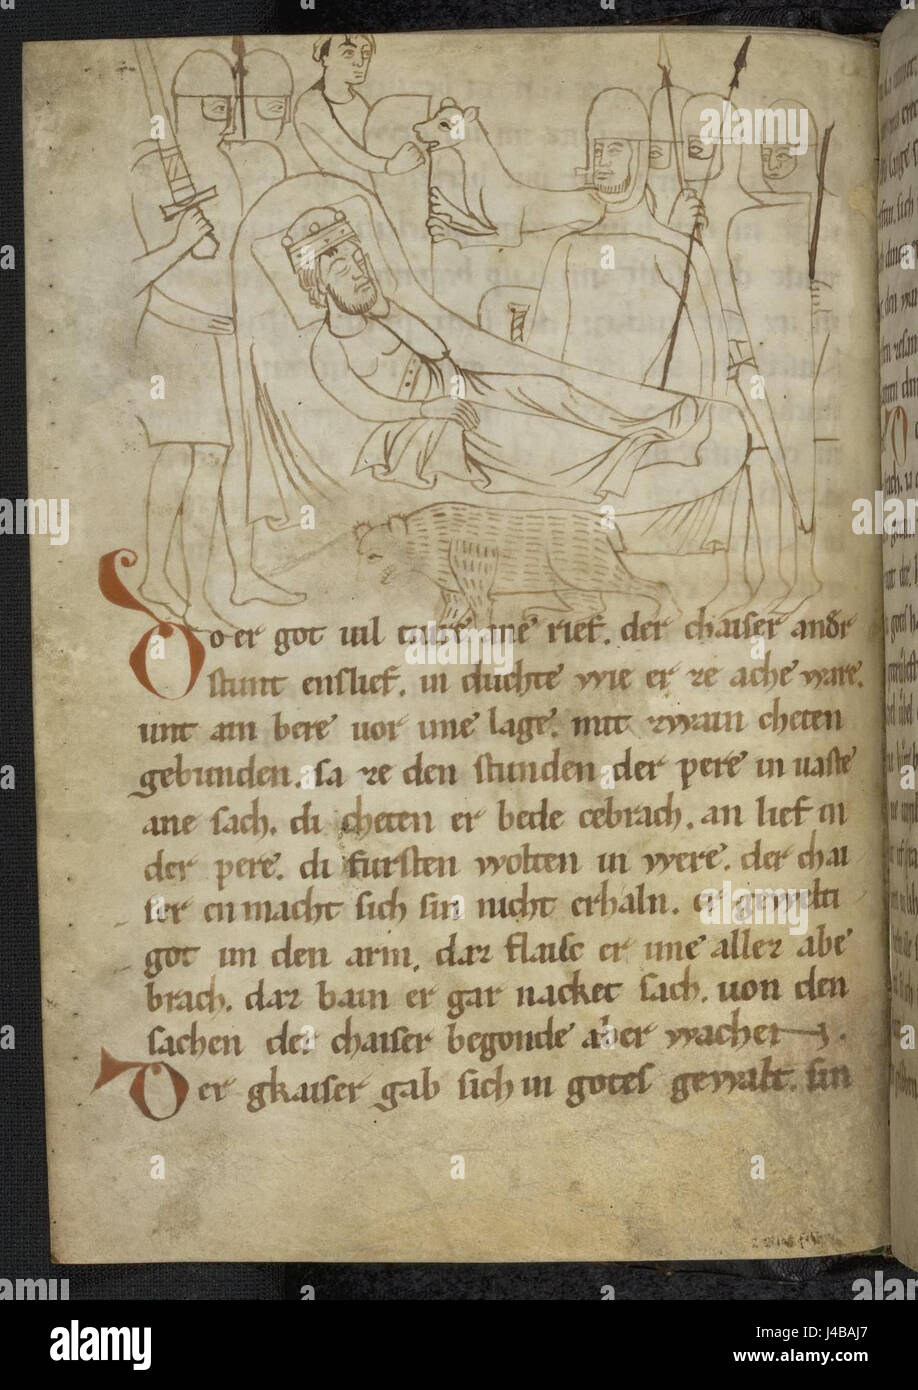 Do er got uil tiure ane rief. der chaiser andr
stunt enslief. in duchte wie er ze ache ware.
unt ain bere uor ime lage. mit zwain cheten
gebunden. sa ze den stunden der pere in uaste
ane sach. di cheten er bede cebrach. an lief in
der pere. di fursten wolten in were. der chai
ser en macht sich sin nicht erhaln. er gewelti
got im den arm. daz flaisc er ime allez abe
brach. daz bain er gar nacket sach. uon den
sachen der chaiser begonde aber wachen.
Der gkaiser gab sich in gotes gewalt. sin
alamy
alamy
Image ID: J4BAJ7
www.alamy.com